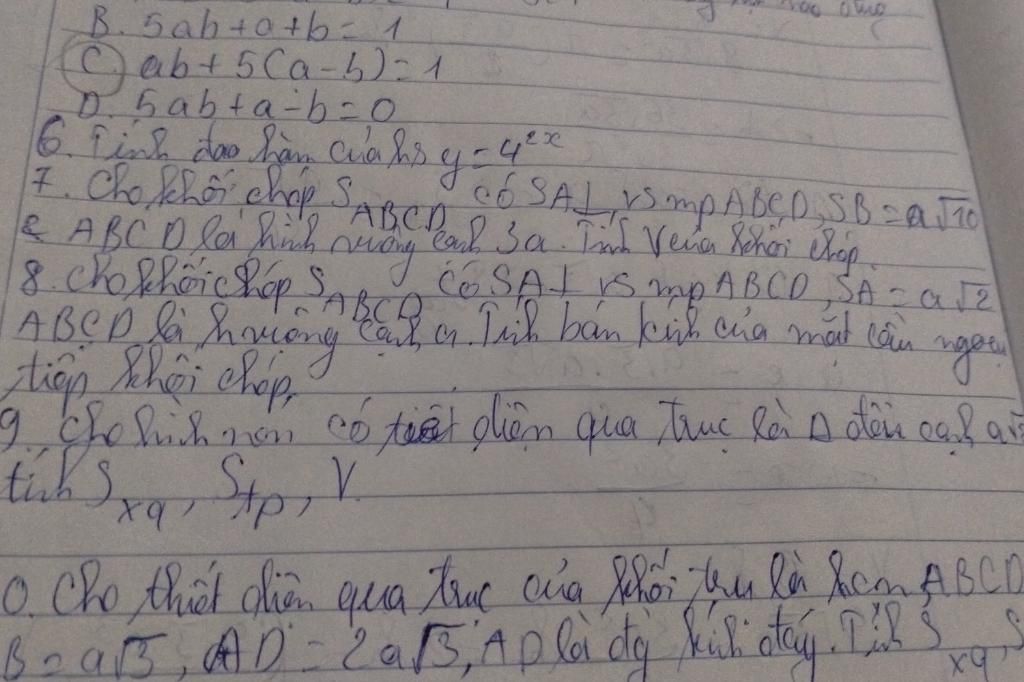 B. 5ab+a+b=1
C. ab+5(a-b)=1
D. 5ab+a-b=0
6. Tính đạo hàm của hs y=4^2x
7. Cho khối chóp S_ABCD có SA⊥ vs mp ABCD, SB=a√10
& ABCD là hình vuông cạnh 3a. Tính V của khối chóp.
8. Cho khối chóp S_ABCD có SA⊥ vs mp ABCD, SA=a√2
ABCD là h vuông cạnh a. Tính bán kính của mặt cầu ngoại
tiếp khối chóp.
9. Cho hình nón có tiết diện qua trục là Δ đều cạnh a√
tính S_xq, S_tp, V.
0. Cho thiết diện qua trục của khối trụ là hcn ABCD
B=a√3, AD=2a√3, AD là đg kính đáy. Tính S_xq, S